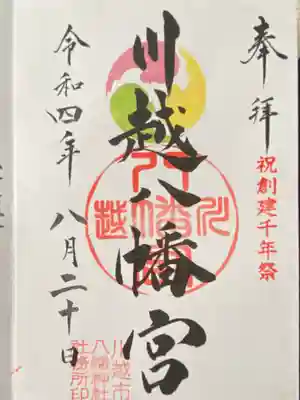 奉拝
祝創建千年祭
川越八幡宮
令和四年 八月二十日
川越市
八幡神社
社務所印